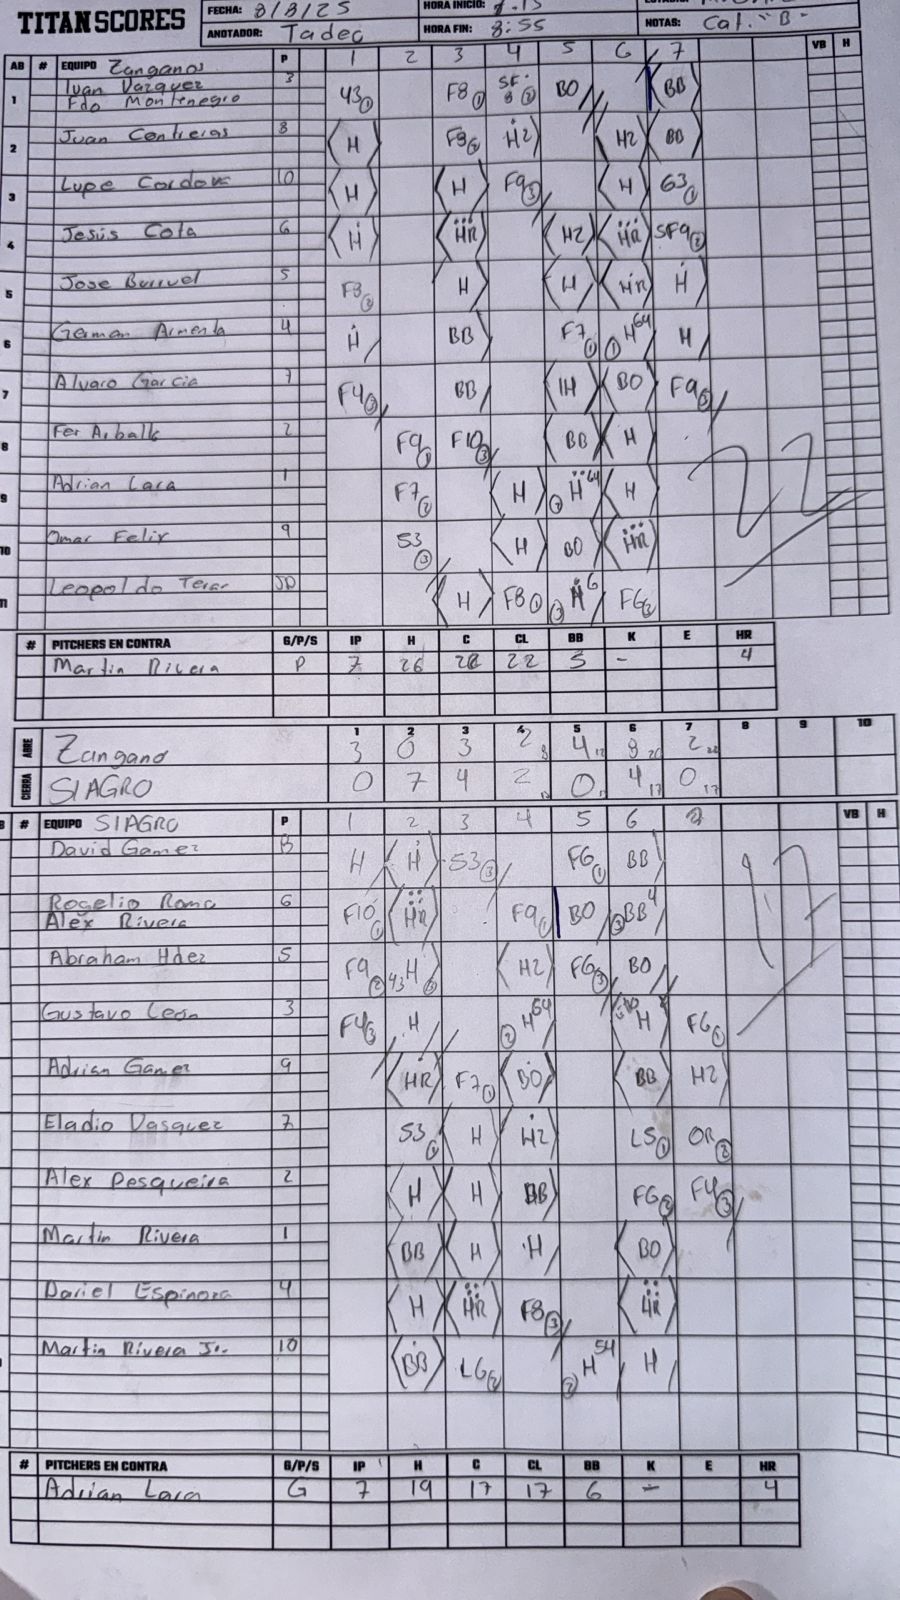 TITAN SCORES
FECHA: 8/8/25 HORA INICIO:
ANOTADOR: Tadeo HORA FIN: 8:55 NOTAS: Cat. "B"
AB # EQUIPO Zanganos P 1 2 3 4 5 6 7 VB H
1 Ivan Vazquez 3 43① F8① SF8② BO BB
Fdo Montenegro
2 Juan Contreras 8 H F8② H2 H2 BB
3 Lupe Cordova 10 H H F9③ H 63①
4 Jesús Cota 6 H HR H2 HR SF9②
5 Jose Burruel 5 F8② H H HR H
6 German Armenta 4 H BB F7① ① H64 H
7 Alvaro Garcia 7 F4③ BB 1H BO F9③
8 Fer Arballo 2 F9① F10③ BB H
9 Adrian Lara 1 F7② H ② H64 H
10 Omar Felix 9 53③ H BO HR
11 Leopoldo Teran JD H F8① ③ H6 F6②
22
# PITCHERS EN CONTRA G/P/S IP H C CL BB K E HR
Martin Rivera P 7 26 22 22 5 - 4
1 2 3 4 5 6 7 8 9 10
ABRE Zangano 3 0 3 2 8 4 12 8 20 2 22
CIERRA SIAGRO 0 7 4 2 0 4 17 0 17
# EQUIPO SIAGRO P 1 2 3 4 5 6 7 VB H
David Gamez 8 H H 53③ F6① BB
Rogelio Romo 6 F10① HR F9① BO ③ BB4
Alex Rivera
Abraham Hdez 5 F9② 43 H H2 F6③ BO
Gustavo León 3 F4③ H ② H64 H F6①
Adrian Gamez 9 HR F7① BO BB H2
Eladio Vasquez 7 53① H H2 L5① OR②
Alex Pesqueira 2 H H BB F6② F4③
Martin Rivera 1 BB H H BO
Dariel Espinoza 4 H HR F8③ HR
Martin Rivera Jr. 10 BB L6② ② H54 H
17
# PITCHERS EN CONTRA G/P/S IP H C CL BB K E HR
Adrian Lara G 7 19 17 17 6 - 4